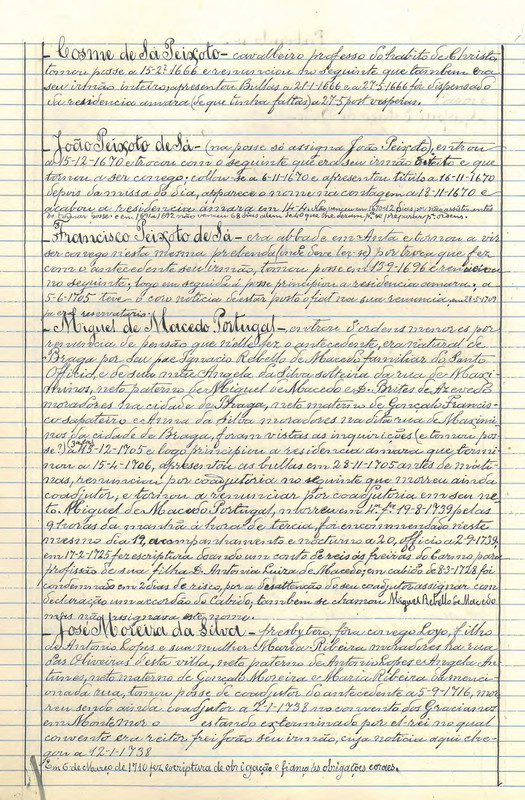 - Cosme de Sá Peixoto - cavalleiro professo do habito de Christo
tomou posse a 15-2º 1666 e renunciou no seguinte que tambem era
seu irmão inteiro, apresentou Bullas a 21-1-1666 e a 27-5-1666 foi dispensado
da residencia amara (de que tinha faltas) a 27-5 post vesperas.
- João Peixoto de Sá - (na posse só assigna João Peixoto), entrou
a 15-12-1670 e trocou com o seguinte que era seu irmão e que
tornou a ser conego; a 6-11-1670 e apresentou titulo a 16-11-1670
depois da missa do dia, apparece o nome na contagem a 18-11-1670 e
acabou a residencia amara em
de tornar posse e em 1691 a 1692 não venceu 68 dias alem de 40 que lhe deram pª se preparar pª ordens.
- Francisco Peixoto de Sá - era abbade em Anta e tornou a vir
ser conego nesta mesma prebenda (onde deve ler-se) por troca que fez
com o antecedente seu irmão, tomou posse em 13-9-1696 e renunciou
no seguinte, logo em seguida á posse principiou a residencia amara, a
5-6-1705 teve o coro noticia de estar posto o fiat na sua renuncia, em 23-5-1709
reservatorio.
- Miguel de Macedo Portugal - entrou d'ordens menores por
renuncia de pensão que n'elle fez o antecedente, era natural de
Braga por seu pae Ignacio Rebello de Macedo, familiar do Santo
Officio, e de sua mãe Angela da Silva solteira da rua de Maxi-
minos, neto paterno de Miguel de Macedo e D. Brites de Azevedo
moradores na cidade de Braga, neto materno de Gonçalo Francis-
co sapateiro e Anna da Silva moradores na dita rua de Maximi-
nos da cidade de Braga, foram vistas as inquirições (e tomou pos-
se?) a 13-12-1705 e logo principiou a residencia amara que termi-
nou a 15-4-1706, apresentou as bullas em 28-11-1705 antes de mati-
nas, renunciou por coadjutoria no seguinte que morreu ainda
coadjutor, e tornou a renunciar por coadjutoria em seu ne-
to Miguel de Macedo Portugal, morreu em 4ª fª 19-8-1739 pelas
9 horas da manhã á hora de tercia, foi encommendado neste
mesmo dia 19, acompanhamento e nocturno a 20, officio a 2-9-1739,
em 17-2-1725 fez escriptura doando um conto de reis ás freiras do Carmo, para
profissão de sua filha D. Antonia Luiza de Macedo; em cabido de 83-1728 foi
condemnado em 2 dias de risco, por a desattenção do seu coadjutor assignar com
declaração um accordão do Cabido, tambem se chamou Miguel Rebello de Macedo
mas não assignava este nome.
- José Moreira da Silva - presbytero, fora conego Loyo, filho
de Antonio Lopes e sua mulher Maria Ribeira moradores na rua
das Oliveiras d'esta villa, neto paterno de Antonio Lopes e Angela An-
tunes, neto materno de Gonçalo Moreira e Maria Ribeira da menci-
onada rua, tomou posse de coadjutor do antecedente a 5-9-1716, mor-
reu sendo ainda coadjutor a 2-1-1738 no convento dos Gracianos
em Montemor o estando exterminado por el-rei no qual
convento era reitor frei João seu irmão, cuja noticia aqui che-
gou a 12-1-1738
Em 6 de Março de 1710 fez escriptura de obrigação e fiança ás obrigações coraes.